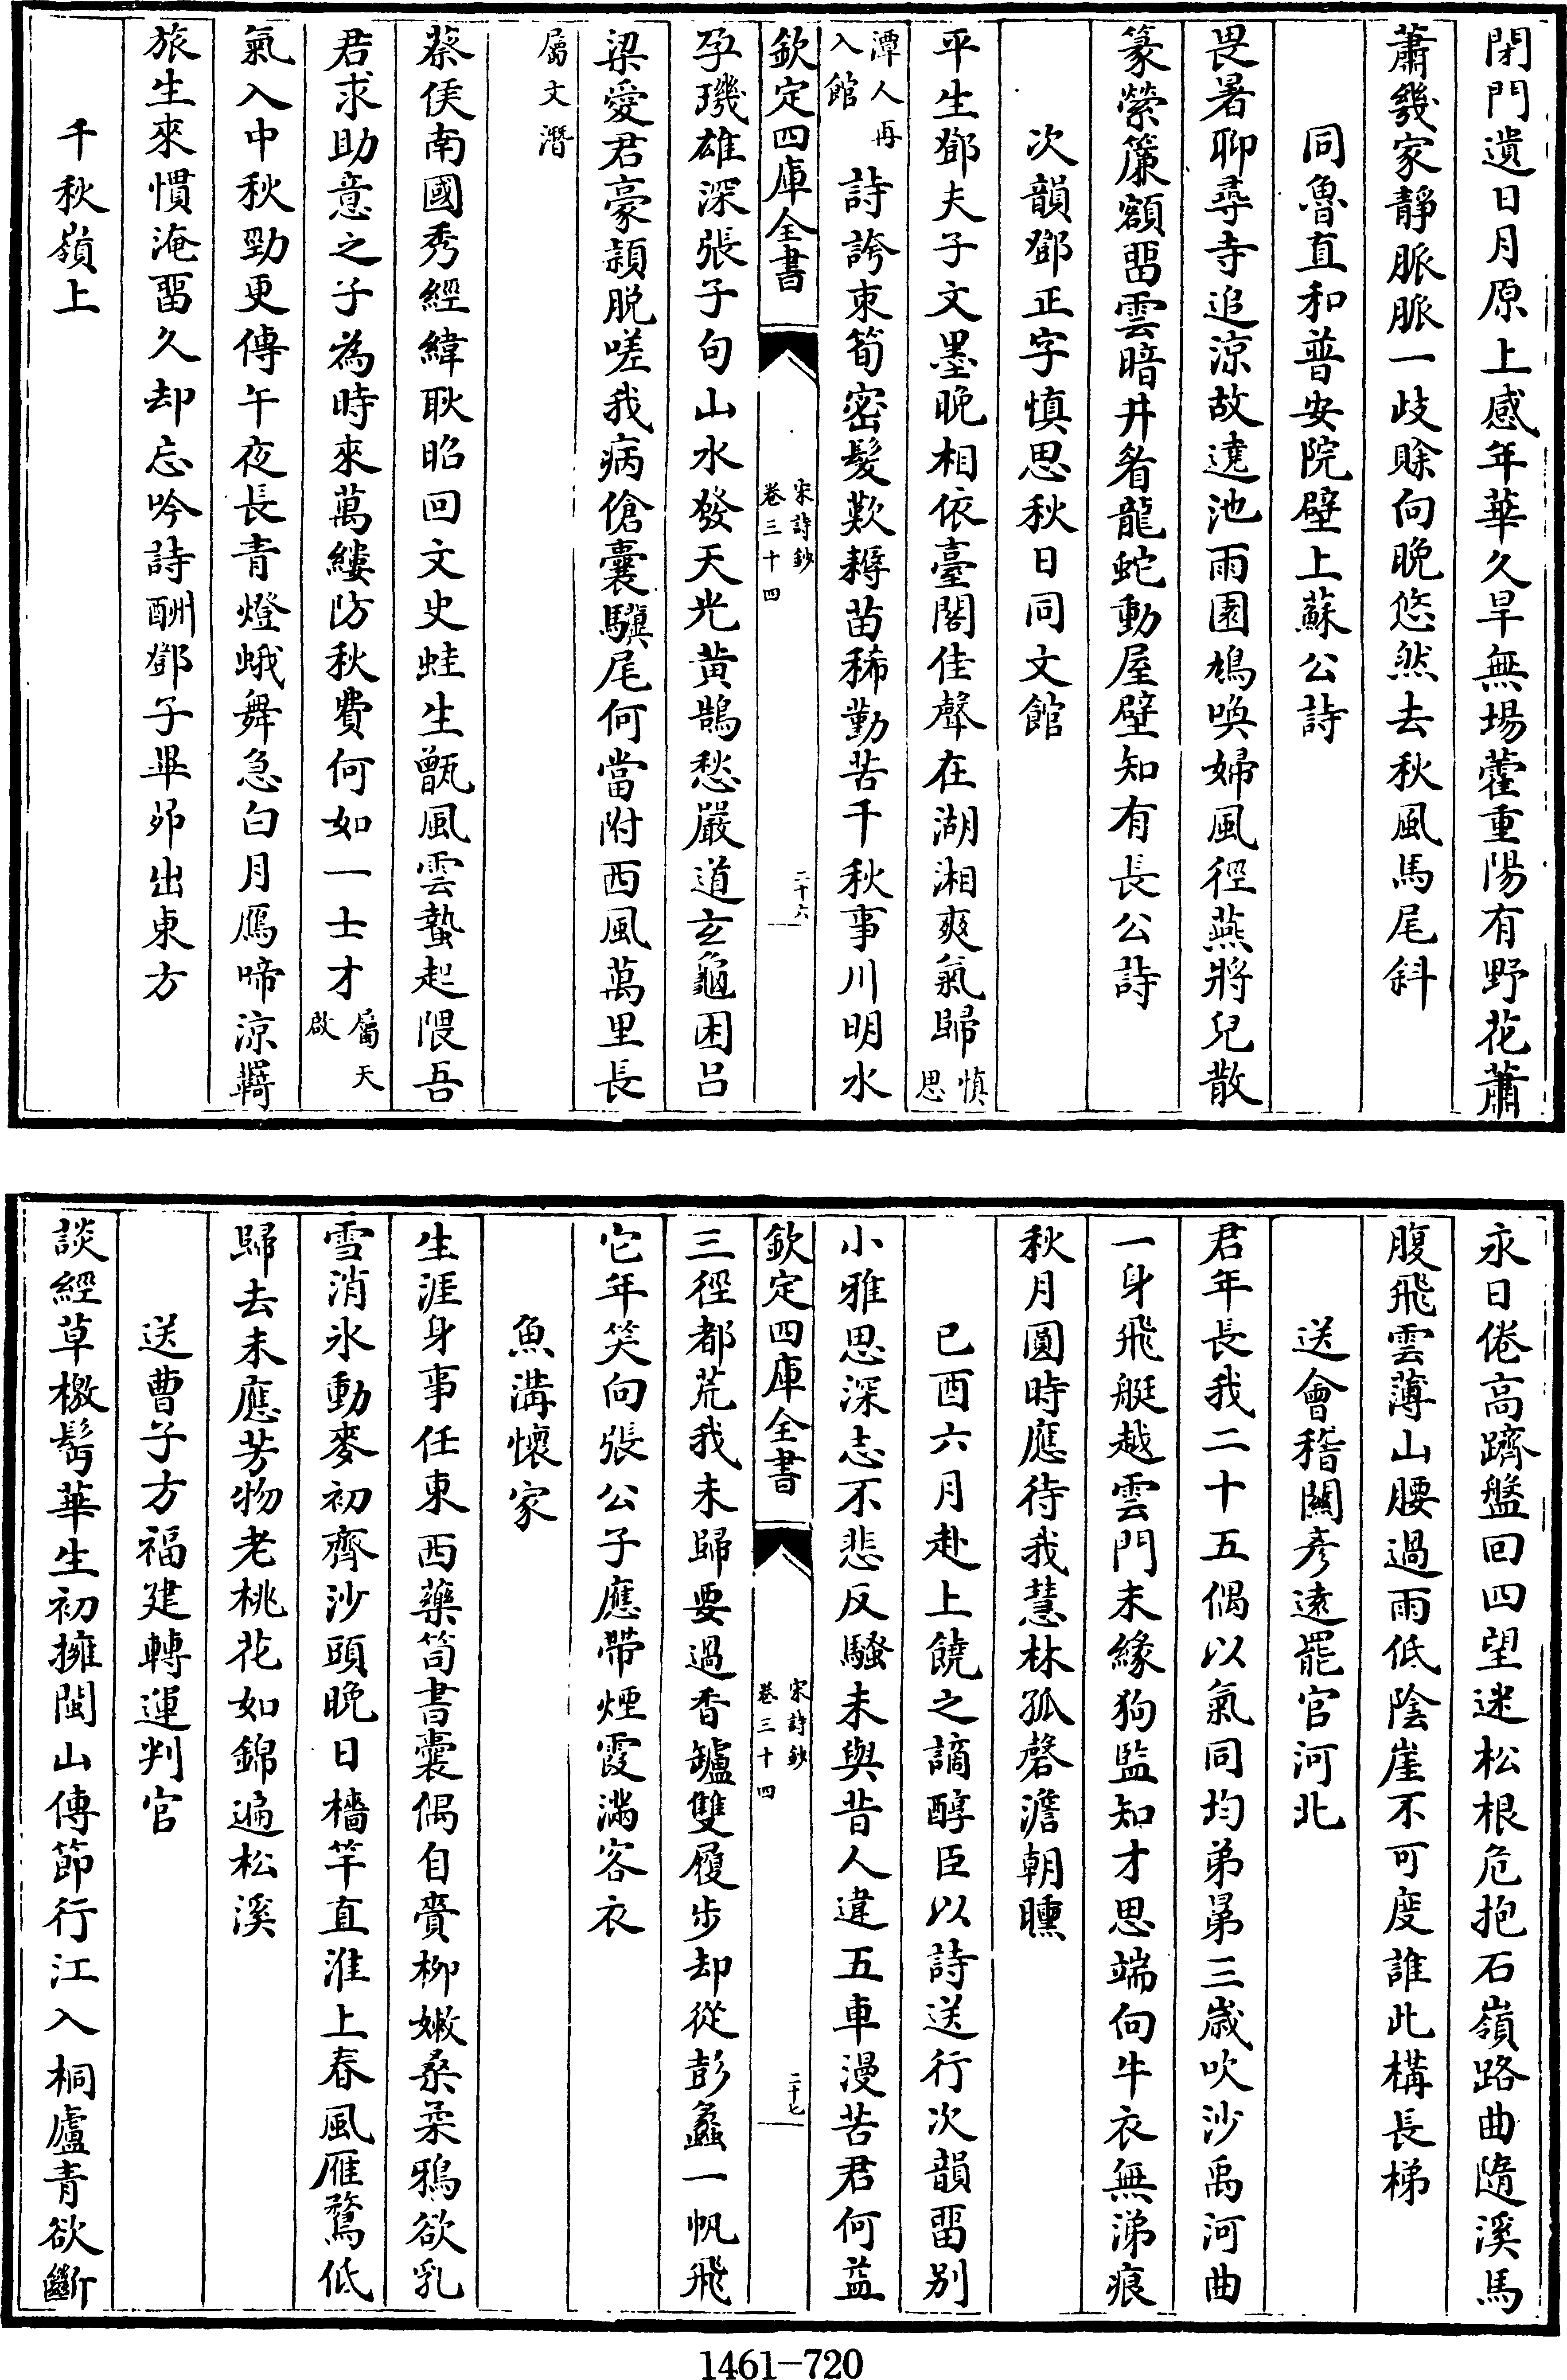 閉門遺日月原上感年華久旱無場藿重陽有野花蕭
蕭幾家靜脈脈一歧賒向晚悠然去秋風馬尾斜
同魯直和普安院壁上蘇公詩
畏暑聊尋寺追涼故遶池雨園鳩喚婦風徑燕將兒散
篆縈簾額畱雲暗井眉龍蛇動屋壁知有長公詩
次韻鄧正字慎思秋日同文館
平生鄧夫子文墨晩相依臺閣佳聲在湖湘爽氣歸慎思
潭人再入館詩誇束筍密髮歎耨苗稀勤苦千秋事川明水
欽定四庫全書
宋詩鈔
卷三十四
二十六
孕璣雄深張子句山水發天光黄鵠愁嚴道玄龜困吕
梁愛君豪頴脱嗟我病傖囊驥尾何當附西風萬里長
屬文潛
蔡侯南國秀經緯耿昭回文史蛙生甑風雲蟄起隈吾
君求助意之子為時來萬縷防秋費何如一士才屬天啟
氣入中秋勁更傳午夜長青燈蛾舞急白月鴈啼涼羇
旅生來慣淹畱久却忘吟詩酬鄧子畢昴出東方
千秋嶺上
永日倦高躋盤回四望迷松根危抱石嶺路曲隨溪馬
腹飛雲薄山腰過雨低陰崖不可度誰此構長梯
送會稽關彥遠罷官河北
君年長我二十五偶以氣同均弟晜三歳吹沙禹河曲
一身飛艇越雲門未緣狗監知才思端向牛衣無涕痕
秋月圓時應待我慧林孤磬澹朝曛
已酉六月赴上饒之謫醇臣以詩送行次韻畱别
小雅思深志不悲反騷未與昔人違五車漫苦君何益
欽定四庫全書
宋詩鈔
卷三十四
二十七
三徑都荒我未歸要過香罏雙履步却從彭蠡一帆飛
它年笑向張公子應帶煙霞滿客衣
魚溝懷家
生涯身事任東西藥笥書囊偶自賫柳嫩桑柔鴉欲乳
雪消氷動麥初齊沙頭晩日檣竿直淮上春風雁鶩低
歸去未應芳物老桃花如錦遍松溪
送曹子方福建轉運判官
談經草檄髩華生初擁閩山傳節行江入桐廬青欲斷
1461-720